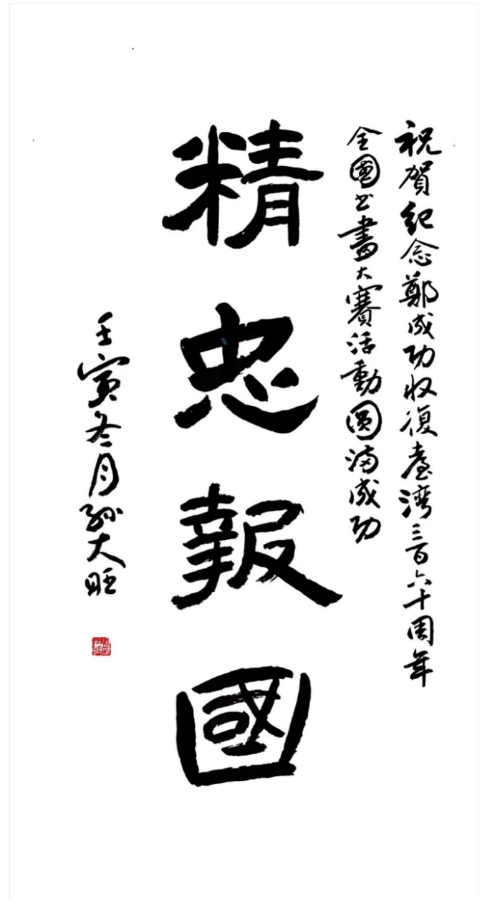 祝賀紀念鄭成功收復臺灣三百六十周年
全國书畫大賽活動圆满成功
精忠報國
壬寅冬月孙大旺